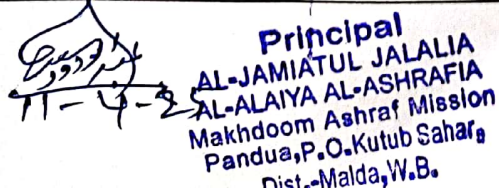 Principal
AL-JAMIATUL JALALIA
AL-ALAIYA AL-ASHRAFIA
Makhdoom Ashraf Mission
Pandua,P.O.Kutub Sahar,
Dist.-Malda,W.B.
11-4-25